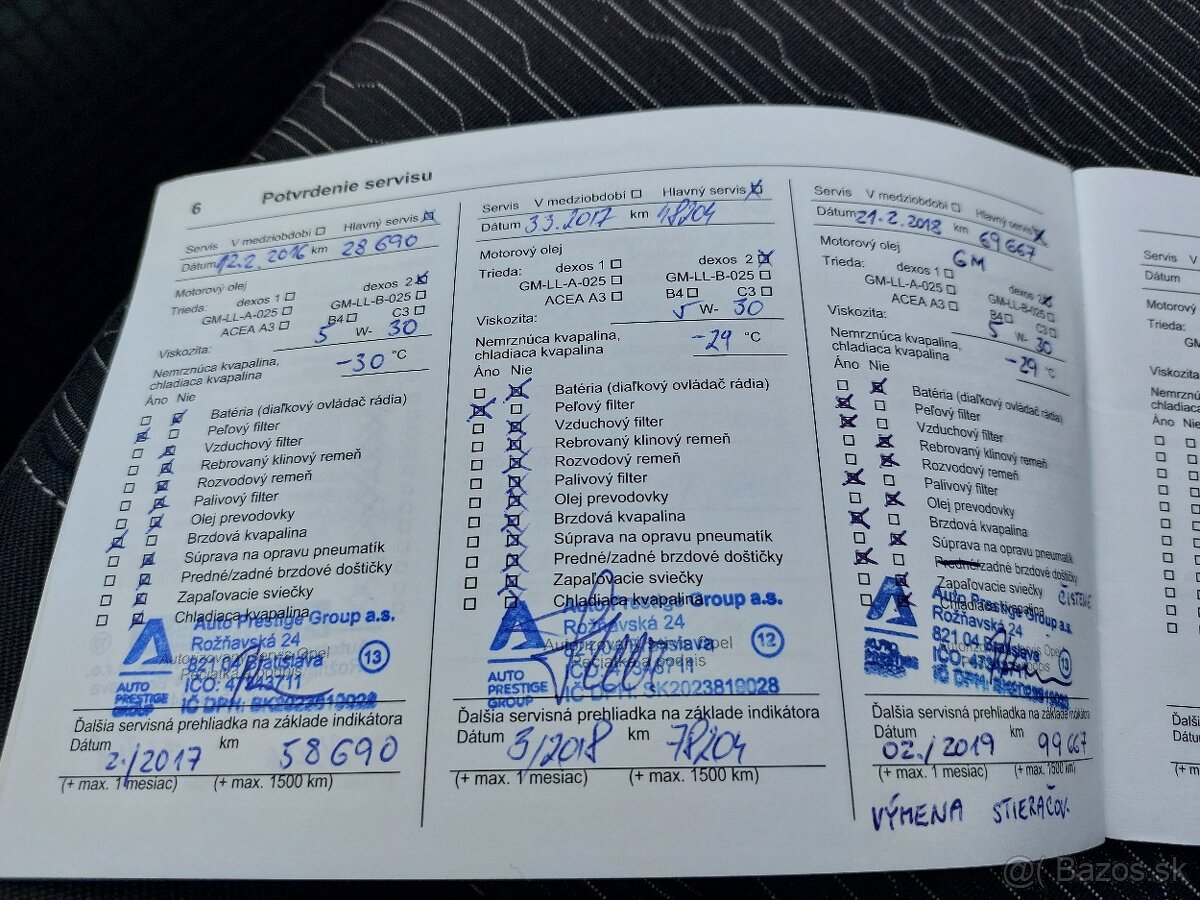 6 Potvrdenie servisu
Servis V medziobdobí Hlavný servis
Dátum 12.2. 2016 km 28 690
Motorový olej
Trieda: dexos 1 dexos 2
GM-LL-A-025 GM-LL-B-025
ACEA A3 B4 C3
Viskozita: 5 W- 30
Nemrznúca kvapalina,
chladiaca kvapalina -30 °C
Áno Nie
Batéria (diaľkový ovládač rádia)
Peľový filter
Vzduchový filter
Rebrovaný klinový remeň
Rozvodový remeň
Palivový filter
Olej prevodovky
Brzdová kvapalina
Súprava na opravu pneumatík
Predné/zadné brzdové doštičky
Zapaľovacie sviečky
Chladiaca kvapalina
Auto Prestige Group a.s.
Rožňavská 24
821 04 Bratislava
13
AUTO
PRESTIGE
GROUP
Ďalšia servisná prehliadka na základe indikátora
Dátum km
2./2017 58690
(+ max. 1 mesiac) (+ max. 1500 km)
Servis V medziobdobí Hlavný servis
Dátum 3.3.2017 km 48204
Motorový olej
Trieda: dexos 1 dexos 2
GM-LL-A-025 GM-LL-B-025
ACEA A3 B4 C3
Viskozita: 5 W- 30
Nemrznúca kvapalina,
chladiaca kvapalina -29 °C
Áno Nie
Batéria (diaľkový ovládač rádia)
Peľový filter
Vzduchový filter
Rebrovaný klinový remeň
Rozvodový remeň
Palivový filter
Olej prevodovky
Brzdová kvapalina
Súprava na opravu pneumatík
Predné/zadné brzdové doštičky
Zapaľovacie sviečky
Chladiaca kvapalina
Auto Prestige Group a.s.
Rožňavská 24
Bratislava
12
AUTO
PRESTIGE
GROUP
IČ DPH: SK2023819028
Ďalšia servisná prehliadka na základe indikátora
Dátum 3/2018 km 78204
(+ max. 1 mesiac) (+ max. 1500 km)
Servis V medziobdobí Hlavný servis
Dátum 21-2. 2018 km 69 667
Motorový olej GM
Trieda: dexos 1 dexos 2
GM-LL-A-025 GM-LL-B-025
ACEA A3 B4 C3
Viskozita: 5 W- 30
Nemrznúca kvapalina,
chladiaca kvapalina -29 °C
Áno Nie
Batéria (diaľkový ovládač rádia)
Peľový filter
Vzduchový filter
Rebrovaný klinový remeň
Rozvodový remeň
Palivový filter
Olej prevodovky
Brzdová kvapalina
Súprava na opravu pneumatík
Predné/zadné brzdové doštičky
Zapaľovacie sviečky
Chladiaca kvapalina
Auto Prestige Group a.s.
Rožňavská 24
821 04 Bratislava
13
Ďalšia servisná prehliadka na základe indikátora
Dátum 02./2019 km 99 667
(+ max. 1 mesiac) (+ max. 1500 km)
VÝMENA STIERAČOV.
Servis V
Dátum
Trieda:
Áno Nie
Bazos.sk